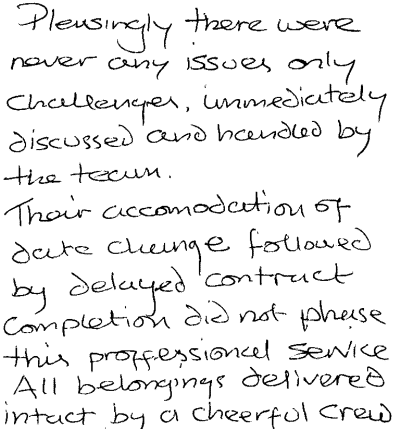 Pleasingly there were
never any issues only
challenges, immediately
discussed and handled by
the team.
Their accomodation of
date change followed
by delayed contract
completion did not phase
this proffessional service
All belongings delivered
intact by a cheerful crew